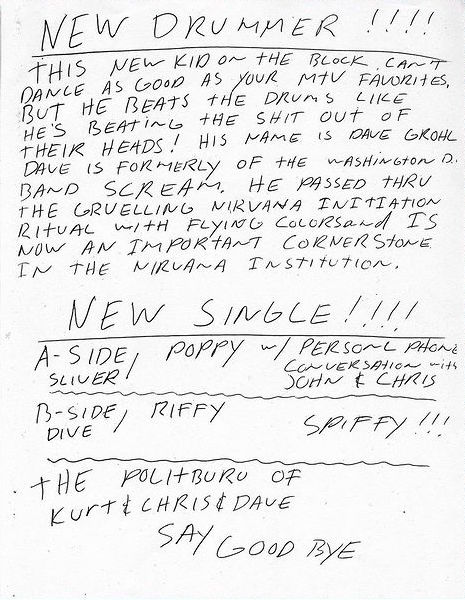 NEW DRUMMER !!!!
THIS NEW KID ON THE BLOCK CAN'T
DANCE AS GOOD AS YOUR MTV FAVORITES,
BUT HE BEATS THE DRUMS LIKE
HE'S BEATING THE SHIT OUT OF
THEIR HEADS! HIS NAME IS DAVE GROHL
DAVE IS FORMERLY OF THE WASHINGTON D.
BAND SCREAM. HE PASSED THRU
THE GRUELLING NIRVANA INITIATION
RITUAL WITH FLYING COLORS and IS
NOW AN IMPORTANT CORNERSTONE
IN THE NIRVANA INSTITUTION.
NEW SINGLE!!!!
A-SIDE, POPPY w/ PERSONL PHONE
SLIVER CONVERSATION with
JOHN & CHRIS
B-SIDE, RIFFY SPIFFY!!!
DIVE
THE POLITBURU OF
KURT & CHRIS & DAVE
SAY
GOOD BYE